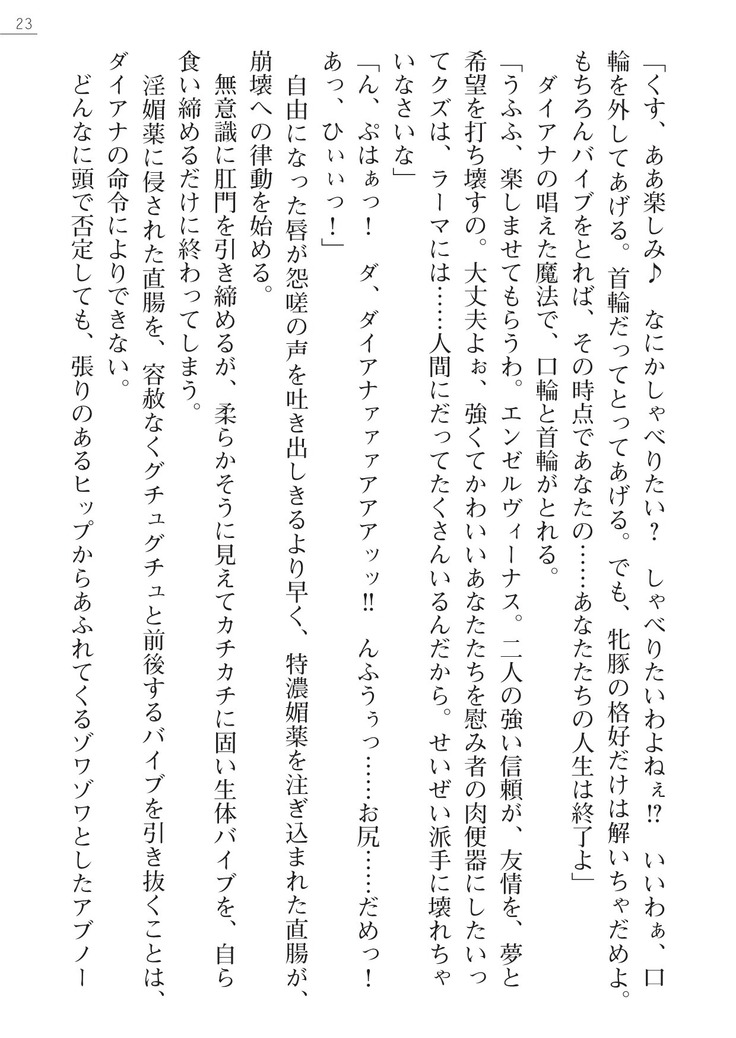 23
「くす、ああ楽しみ♪　なにかしゃべりたい？　しゃべりたいわよねぇ!?　いいわぁ、口
輪を外してあげる。首輪だってとってあげる。でも、牝豚の格好だけは解いちゃだめよ。
もちろんバイブをとれば、その時点であなたの……あなたたちの人生は終了よ」
ダイアナの唱えた魔法で、口輪と首輪がとれる。
「うふふ、楽しませてもらうわ。エンゼルヴィーナス。二人の強い信頼が、友情を、夢と
希望を打ち壊すの。大丈夫よぉ、強くてかわいいあなたたちを慰み者の肉便器にしたいっ
てクズは、ラーマには……人間にだってたくさんいるんだから。せいぜい派手に壊れちゃ
いなさいな」
「ん、ぷはぁっ！　ダ、ダイアナァァァアアアッッ!!　んふうぅっ……お尻……だめっ！
あっ、ひぃぃっ！」
自由になった唇が怨嗟の声を吐き出しきるより早く、特濃媚薬を注ぎ込まれた直腸が、
崩壊への律動を始める。
無意識に肛門を引き締めるが、柔らかそうに見えてカチカチに固い生体バイブを、自ら
食い締めるだけに終わってしまう。
淫媚薬に侵された直腸を、容赦なくグチュグチュと前後するバイブを引き抜くことは、
ダイアナの命令によりできない。
どんなに頭で否定しても、張りのあるヒップからあふれてくるゾワゾワとしたアブノー